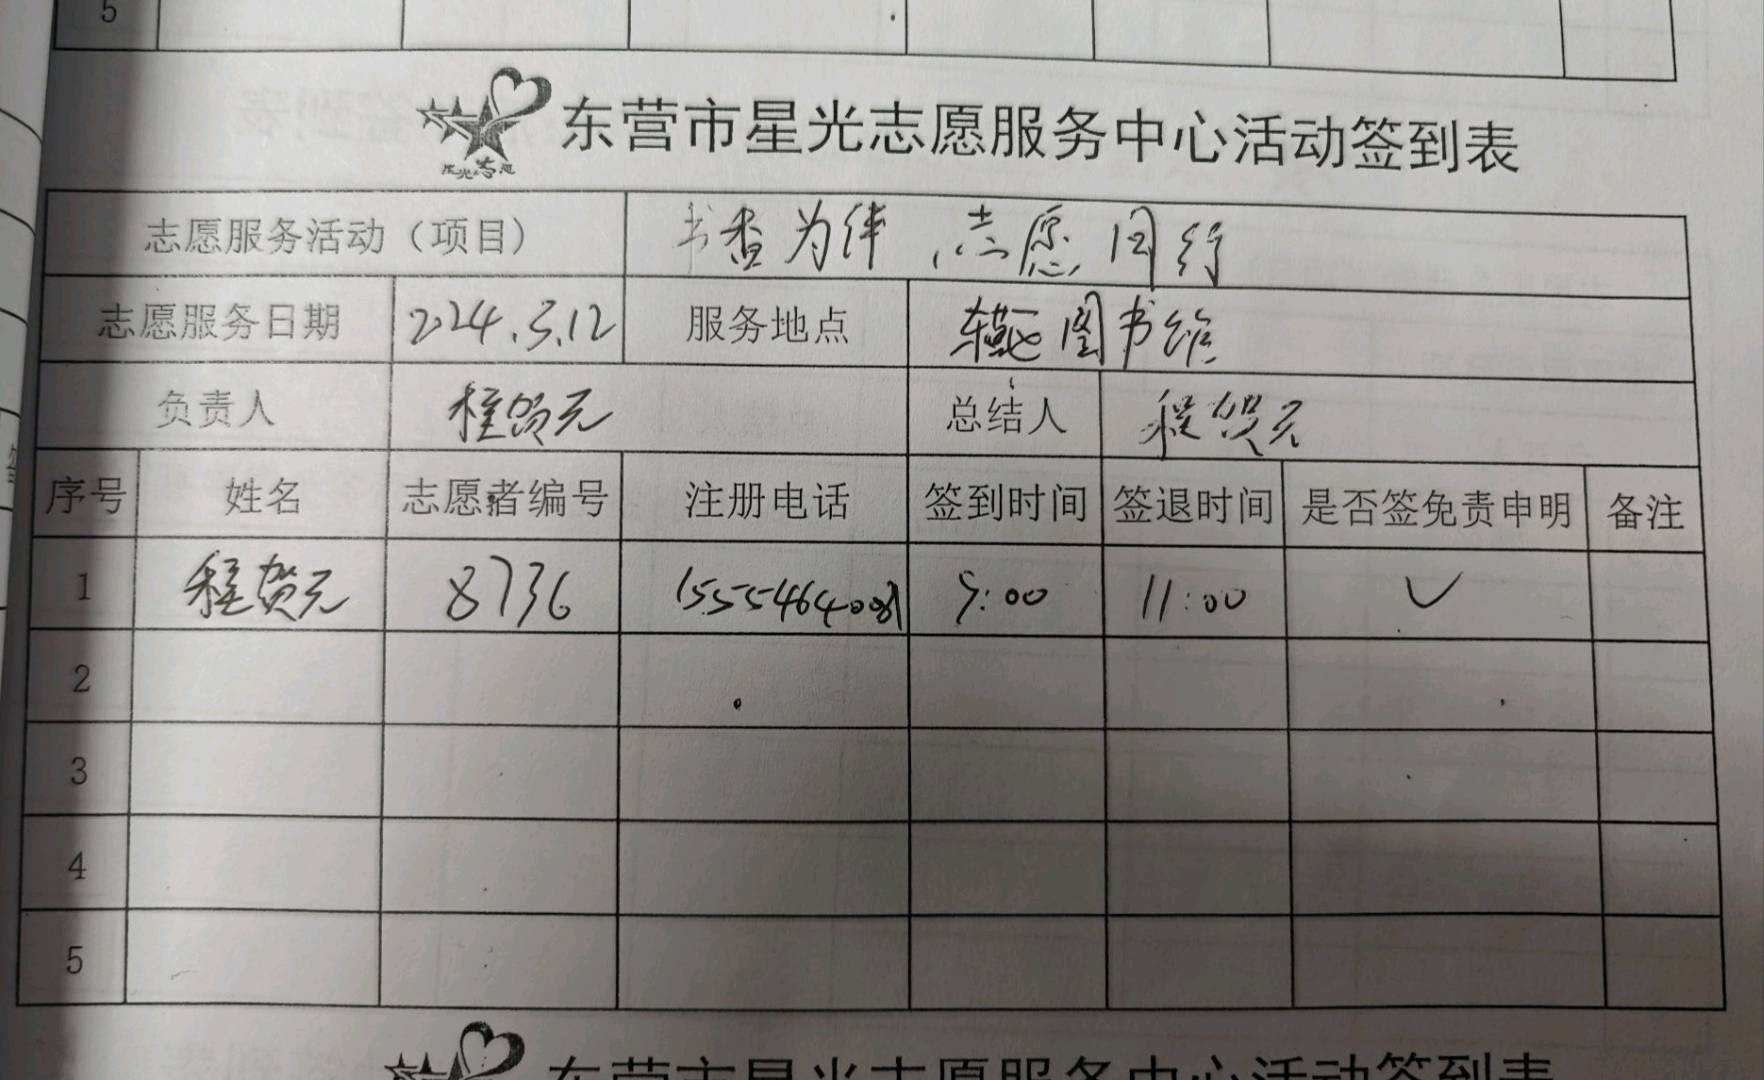 5
东营市星光志愿服务中心活动签到表
志愿服务活动（项目） 书香为伴，志愿同行
志愿服务日期 2024.3.12 服务地点 图书馆
负责人 程贺元 总结人 程贺元
序号 姓名 志愿者编号 注册电话 签到时间 签退时间 是否签免责申明 备注
1 程贺元 8736 9:00 11:00 ✓
2
3
4
5
东营市星光志愿服务中心活动签到表